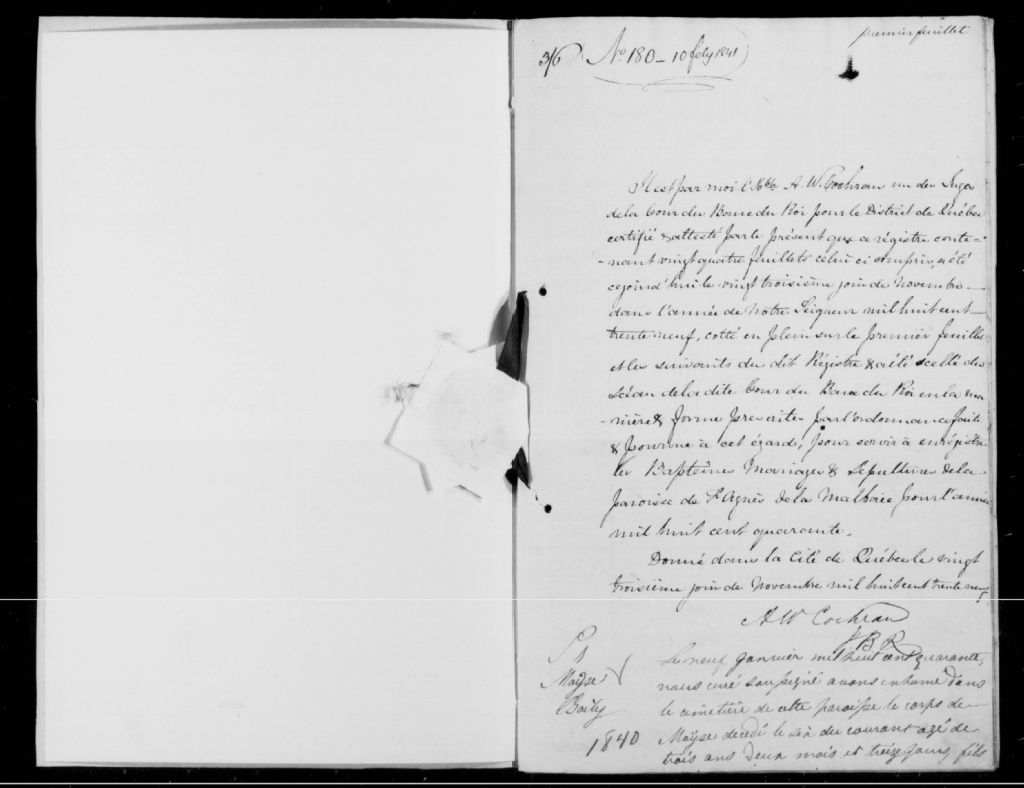 premier feuillet
3/6 No 180 - 10 feby 1841
Il est par moi l'Hble A. W. Cochran un des Juges
de la Cour du Banc du Roi pour le District de Québec
certifié & attesté par le présent que ce régistre conte-
-nant vingt quatre feuillets celui ci compris, a été
cejourd'hui le vingt troisième jour de Novembre
dans l'année de Notre Seigneur mil huit cent
trente neuf, cotté en plein sur le premier feuillet
et les suivants du dit Régistre & a été scellé du
Scéau de la dite Cour du Banc du Roi en la ma
-nière & forme prescrites par l'ordonnance faite
& pourvue à cet égard, pour servir à enrégistrer
les Baptêmes Mariages & Sepultures de la
paroisse de Ste Agnès de la Malbaie pour l'année
mil huit cent quarante.
Donné dans la Cité de Québec le vingt
troisième jour de Novembre mil huit cent trente neuf
A W Cochran
J B R
S 1
Moÿse
Boily
1840
Le neuf Janvier mil huit cent quarante,
nous curé soussigné avons inhumé dans
le cimetière de cette paroisse le corps de
Moÿse décédé le six du courant agé de
trois ans deux mois et treize jours, fils